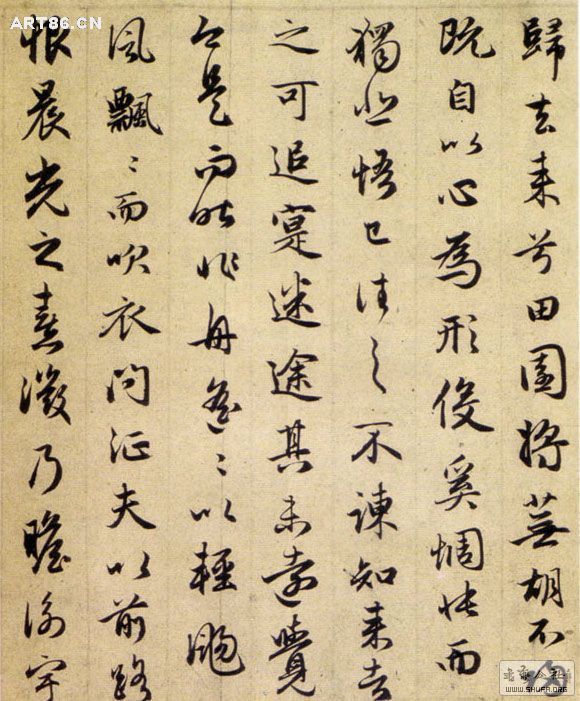 歸去来兮田園將蕪胡不
既自以心為形役奚惆悵而
獨悲悟已往之不諫知来者
之可追寔迷途其未遠覺
今是而昨非舟遥〻以輕颺
風飄〻而吹衣問征夫以前路
恨晨光之熹微乃瞻衡宇
ART86.CN
WWW.SHUFA.ORG